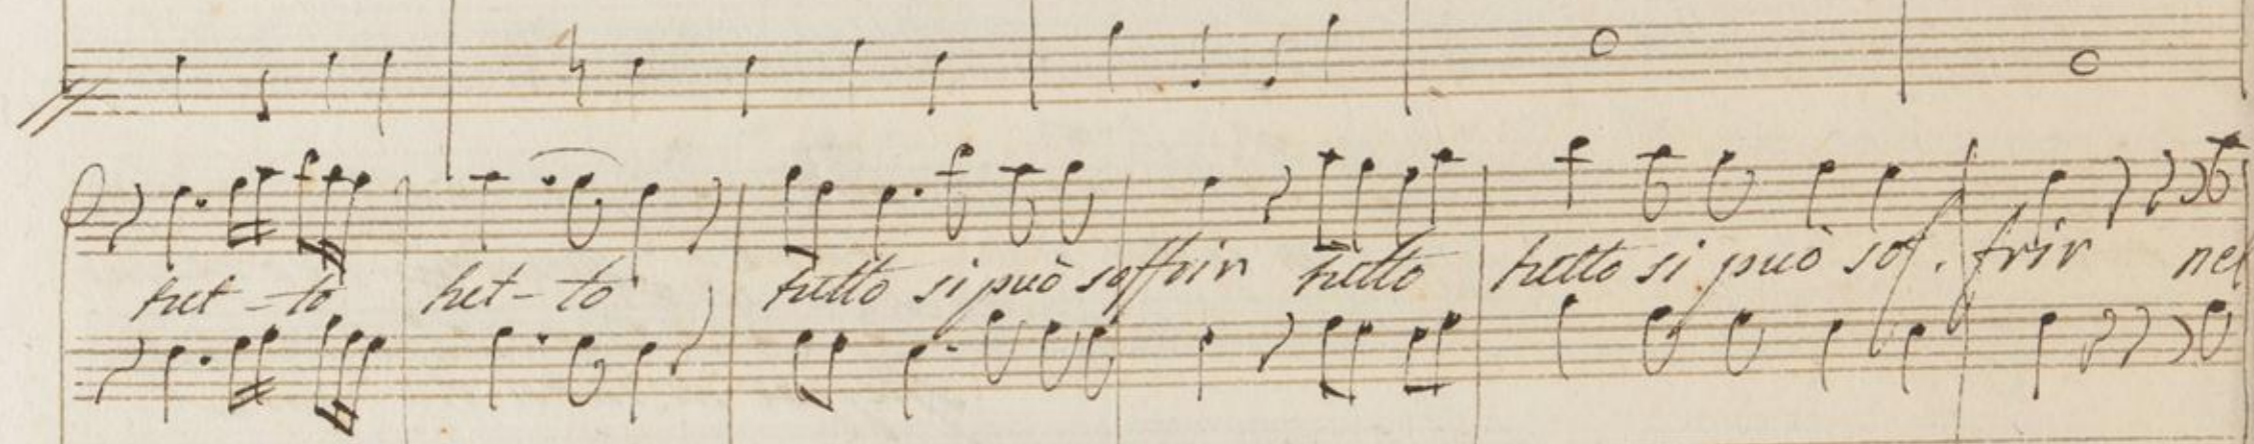 tut-to tut-to tutto si può soffrir tutto tutto si può sof. frir nel